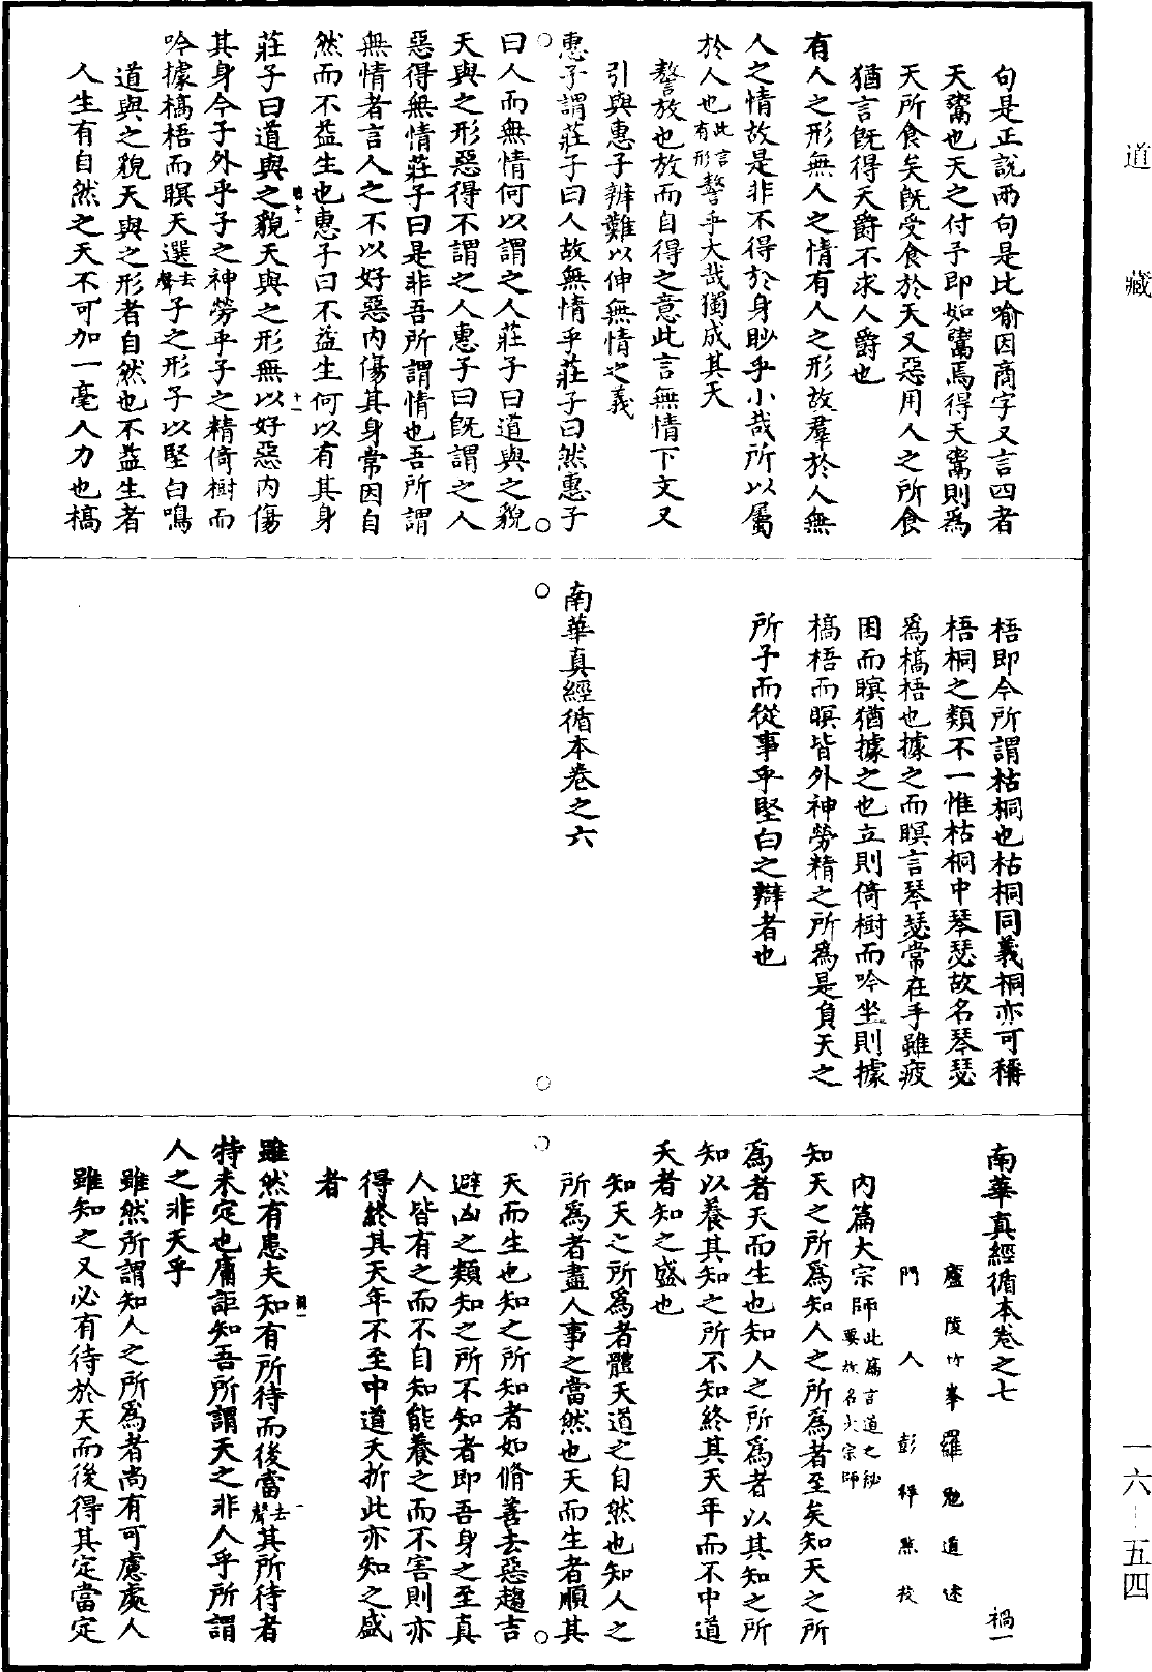 道藏
句是正說兩句是比喻因商字又言四者
天鬻也天之付予即如鬻焉得天鬻則為
天所食矣旣受食於天又惡用人之所食
猶言旣得天爵不求人爵也
有人之形無人之情有人之形故羣於人無
人之情故是非不得於身眇乎小哉所以屬
於人也此言有形謷乎大哉獨成其天
謷放也放而自得之意此言無情下文又
引與惠子辨難以伸無情之義
惠子謂莊子曰人故無情乎莊子曰然惠子
曰人而無情何以謂之人莊子曰道與之貌
天與之形惡得不謂之人惠子曰旣謂之人
惡得無情莊子曰是非吾所謂情也吾所謂
無情者言人之不以好惡內傷其身常因自
然而不益生也惠子曰不益生何以有其身
莊子曰道與之貌天與之形無以好惡內傷
其身今子外乎子之神勞乎子之精倚樹而
吟據槁梧而瞑天選去聲子之形子以堅白鳴
道與之貌天與之形者自然也不益生者
人生有自然之天不可加一毫人力也槁
梧即今所謂枯桐也枯桐同義桐亦可稱
梧桐之類不一惟枯桐中琴瑟故名琴瑟
為槁梧也據之而瞑言琴瑟常在手雖疲
困而瞑猶據之也立則倚樹而吟坐則據
槁梧而瞑皆外神勞精之所為是負天之
所予而從事乎堅白之辯者也
南華真經循本卷之六
南華真經循本卷之七 禍一
廬陵竹峯羅勉道述
門人彭祥點校
內篇大宗師此篇言道之祕要故名大宗師
知天之所為知人之所為者至矣知天之所
為者天而生也知人之所為者以其知之所
知以養其知之所不知終其天年而不中道
夭者知之盛也
知天之所為者體天道之自然也知人之
所為者盡人事之當然也天而生者順其
天而生也知之所知者如脩善去惡趨吉
避凶之類知之所不知者即吾身之至真
人皆有之而不自知能養之而不害則亦
得終其天年不至中道夭折此亦知之盛
者
雖然有患夫知有所待而後當去聲其所待者
特未定也庸詎知吾所謂天之非人乎所謂
人之非天乎
雖然所謂知人之所為者尚有可慮處人
雖知之又必有待於天而後得其定當定
一六–五四